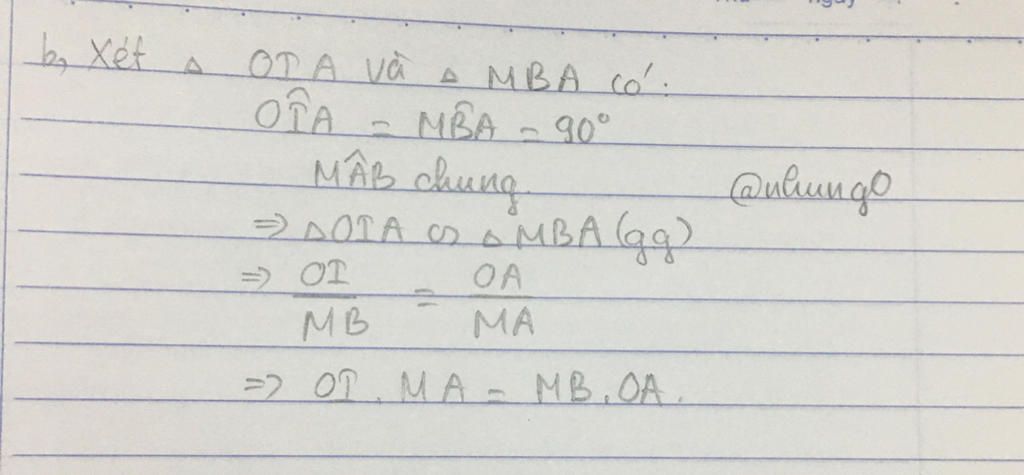 ngày
b, Xét △ OIA và △ MBA có:
OÎA = MB̂A = 90°
MÂB chung. @nhung0
⇒ △OIA ∽ △MBA (gg)
⇒ OI/MB = OA/MA
⇒ OI . MA = MB . OA.